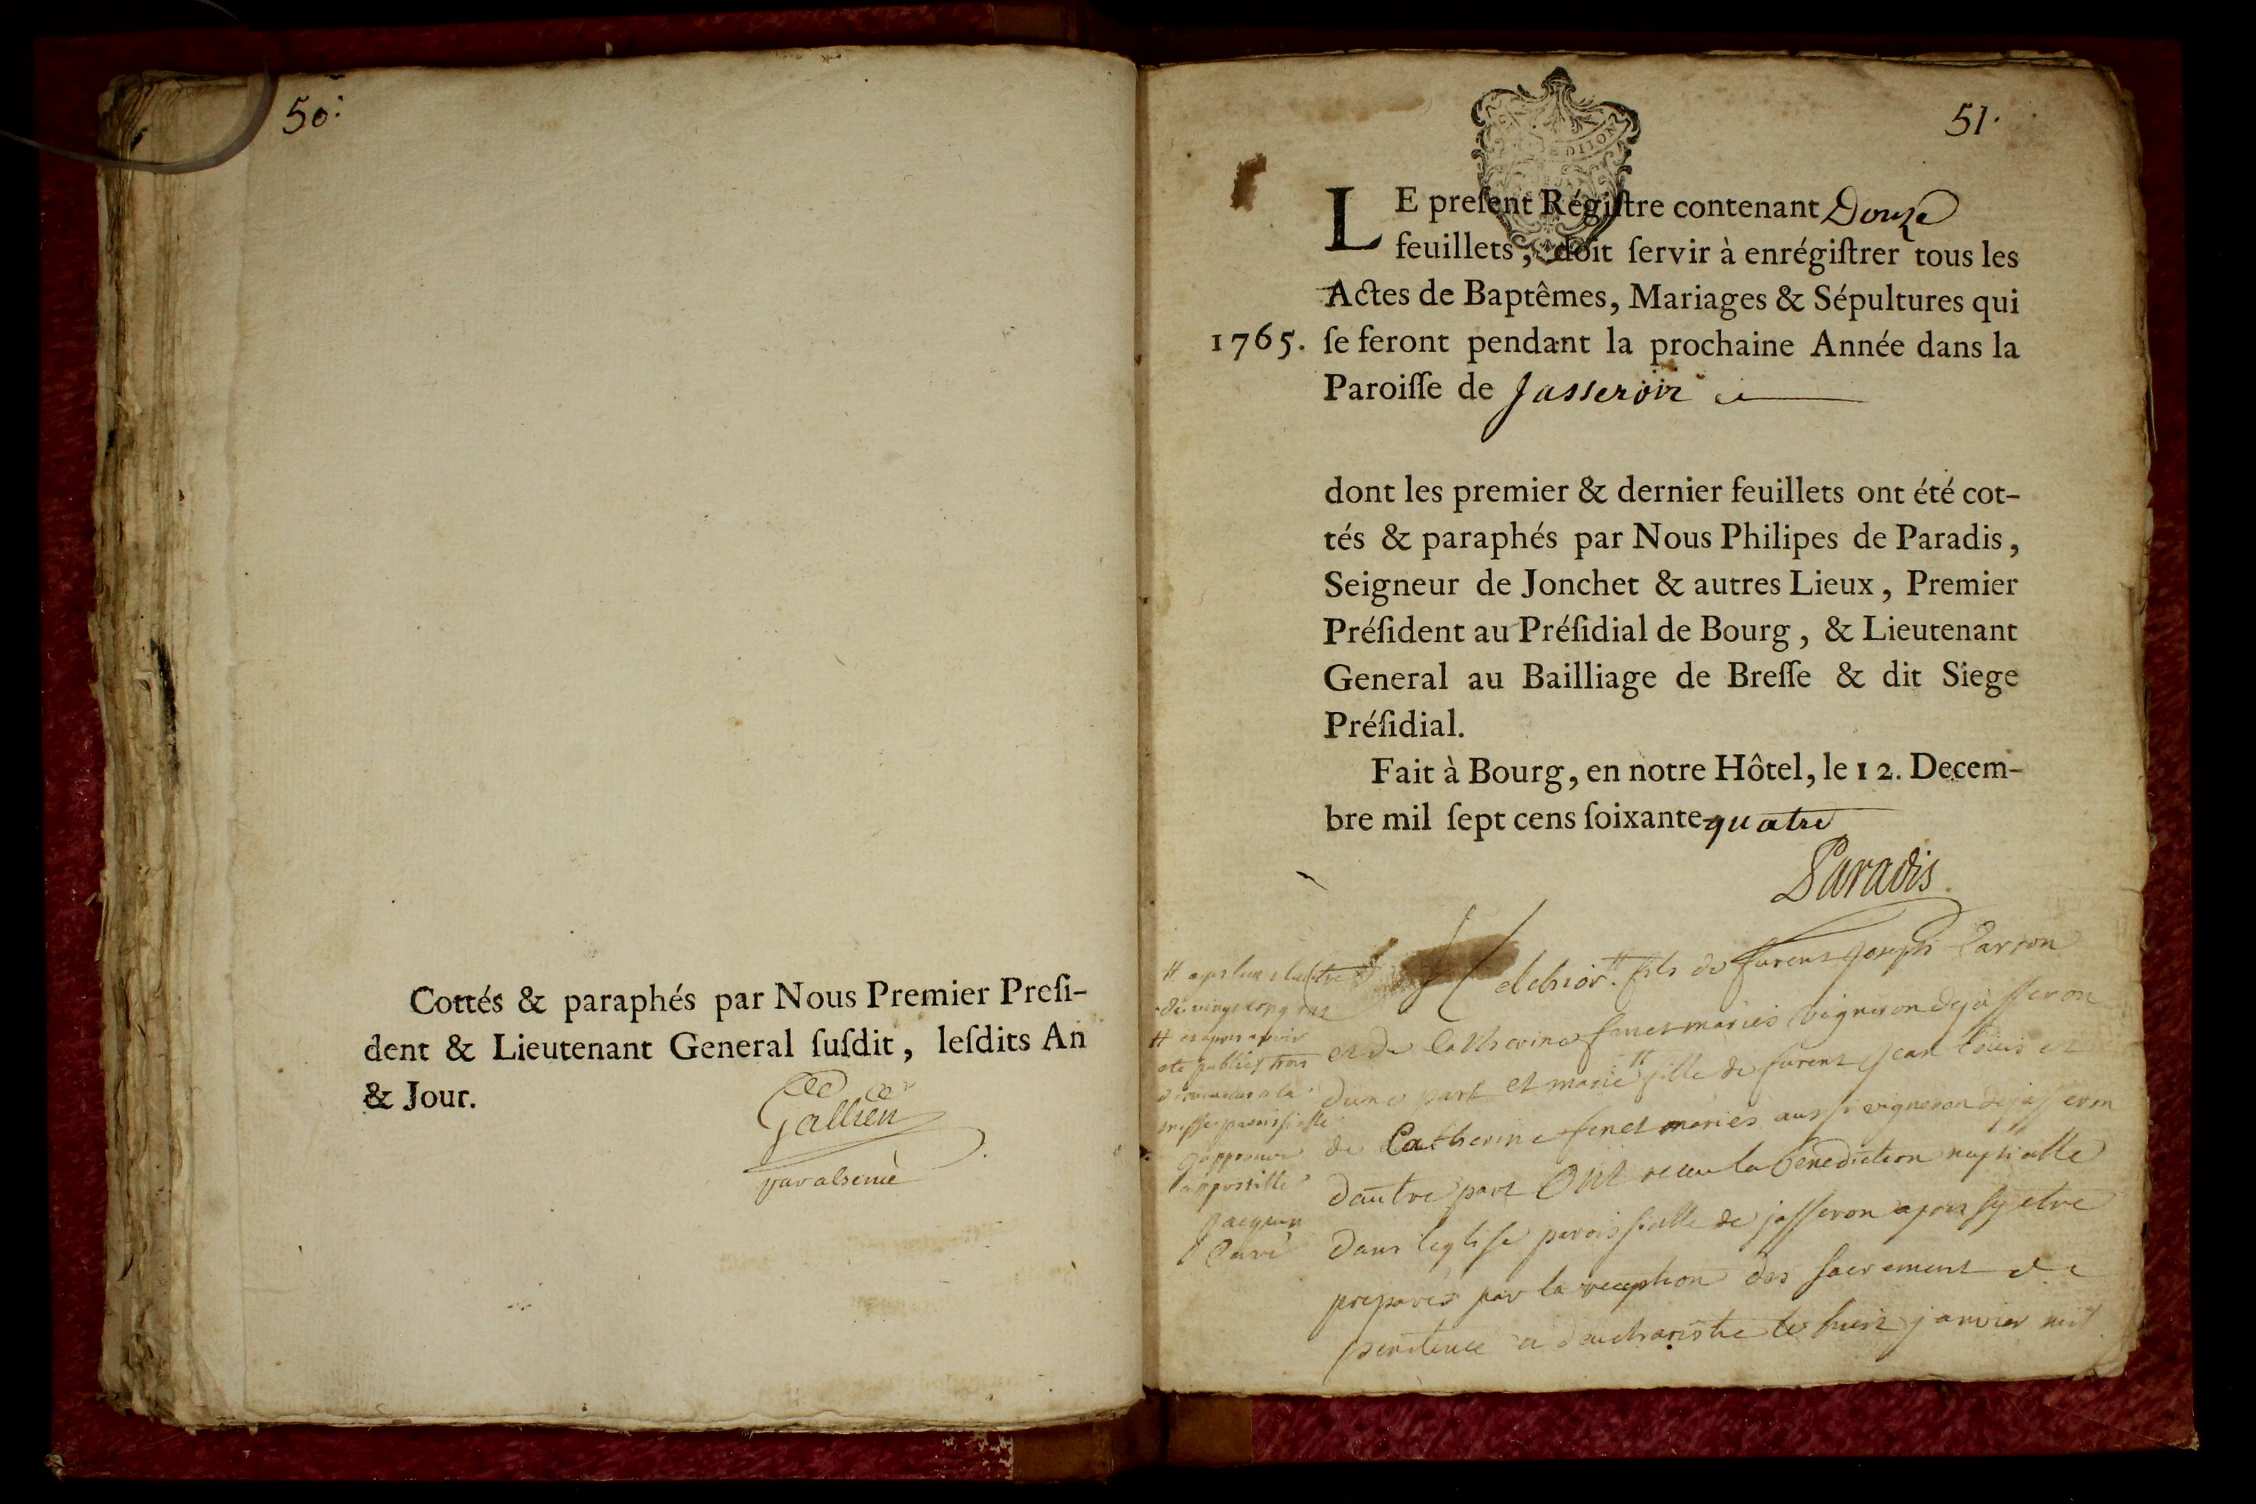 50.
Cottés & paraphés par Nous Premier Presi-
dent & Lieutenant General ſuſdit, leſdits An
& Jour.
Gallien
par absence
51.
LE preſent Régiſtre contenant Douze
feuillets, doit ſervir à enrégiſtrer tous les
Actes de Baptêmes, Mariages & Sépultures qui
1765. ſe feront pendant la prochaine Année dans la
Paroiſſe de Jasseron
dont les premier & dernier feuillets ont été cot-
tés & paraphés par Nous Philipes de Paradis,
Seigneur de Jonchet & autres Lieux, Premier
Préſident au Préſidial de Bourg, & Lieutenant
General au Bailliage de Breſſe & dit Siege
Préſidial.
Fait à Bourg, en notre Hôtel, le 12. Decem-
bre mil ſept cens ſoixante quatre
Paradis
Melchior # fils de furent Joseph Carron
et de Catherine mariés vigneron de jasseron
d'une part et marie # fille de furent Jean Louis et
de Catherine mariés aussi vigneron de jasseron
dautre part Ont receu la benediction nuptialle
dans leglise paroissialle de jasseron apres sy etre
preparés par la reception des sacrement de
penitence et deucharistie le huit janvier mil
# et apres avoir
eté publiés trois
dimanches a la
messe paroissialle
japprouve
lappostille
Jacquen
Curé